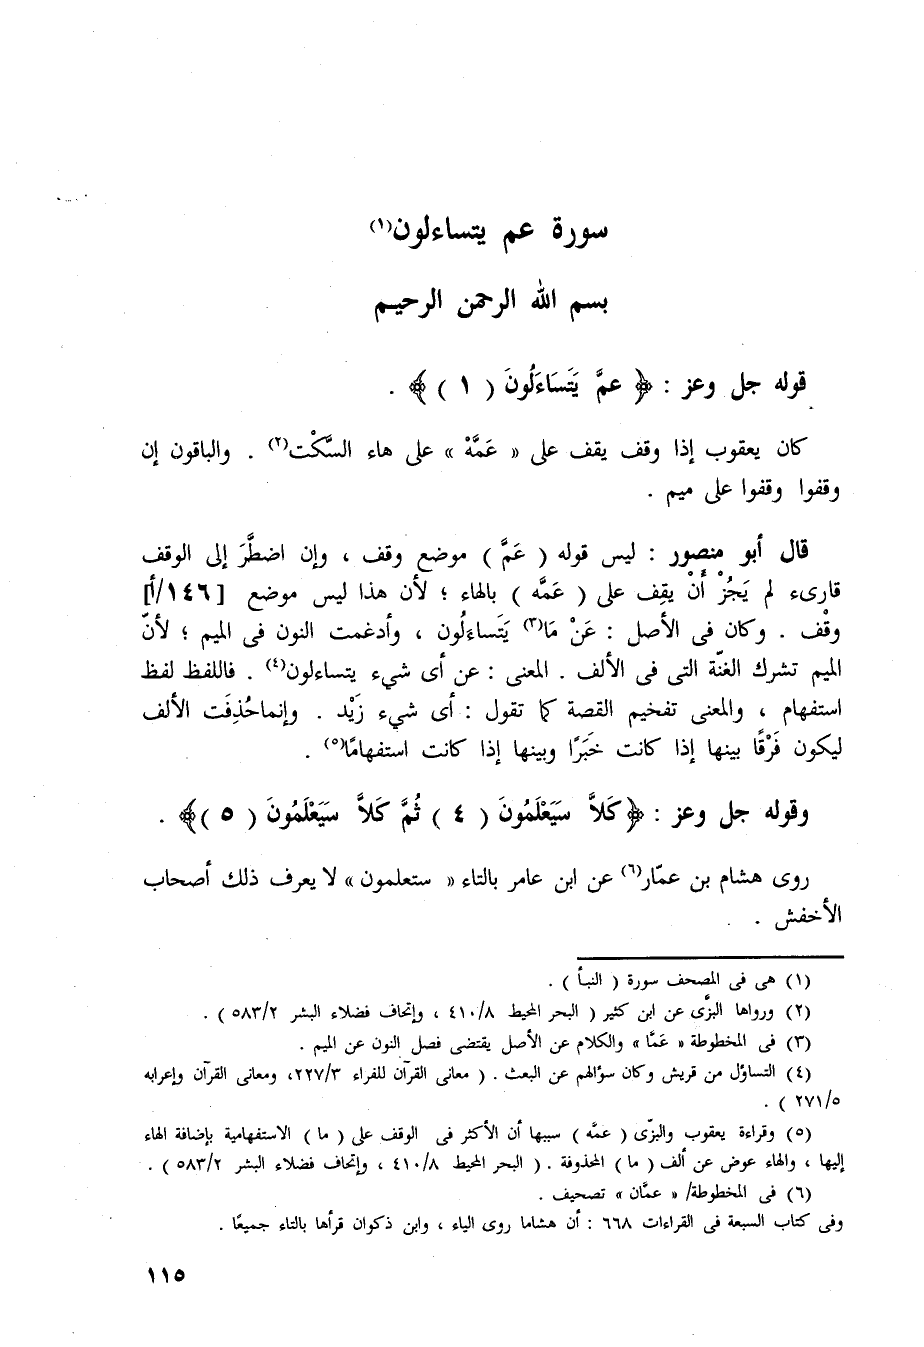 سورة عم يتساءلون(١)
بسم الله الرحمن الرحيم
قوله جل وعز : ﴿ عمَّ يَتَسَاءَلُونَ ( ١ ) ﴾ .
كان يعقوب إذا وقف يقف على « عَمَّهْ » على هاء السَّكْت(٢) . والباقون إن
وقفوا وقفوا على ميم .
قال أبو منصور : ليس قوله ( عَمَّ ) موضع وقف ، وإن اضطَّرَ إلى الوقف
قارىء لم يَجُزْ أَنْ يقِف على ( عَمَّه ) بالهاء ؛ لأن هذا ليس موضع [١٤٦/أ]
وقْف . وكان فى الأصل : عَنْ مَا(٣) يَتَساءَلُون ، وأدغمت النون فى الميم ؛ لأنّ
الميم تشرك الغنّة التى فى الألف . المعنى : عن أى شيء يتساءلون(٤) . فاللفظ لفظ
استفهام ، والمعنى تفخيم القصة كما تقول : أى شيء زَيْد . وإنماحُذِفَت الألف
ليكون فَرْقًا بينها إذا كانت خَبَرًا وبينها إذا كانت استفهامًا(٥) .
وقوله جل وعز : ﴿ كَلاَّ سَيَعْلَمُونَ ( ٤ ) ثُمَّ كَلاَّ سَيَعْلَمُونَ ( ٥ ) ﴾ .
روى هشام بن عمّار(٦) عن ابن عامر بالتاء « ستعلمون » لا يعرف ذلك أصحاب
الأخفش .
(١) هى فى المصحف سورة ( النبأ ) .
(٢) ورواها البزّى عن ابن كثير ( البحر المحيط ٤١٠/٨ ، وإتحاف فضلاء البشر ٥٨٣/٢ ) .
(٣) فى المخطوطة « عَمَّا » والكلام عن الأصل يقتضى فصل النون عن الميم .
(٤) التساؤل من قريش وكان سؤالهم عن البعث . ( معانى القرآن للفراء ٢٢٧/٣، ومعانى القرآن وإعرابه
٢٧١/٥ ) .
(٥) وقراءة يعقوب والبزّى ( عمَّه ) سببها أن الأكثر فى الوقف على ( ما ) الاستفهامية بإضافة الهاء
إليها ، والهاء عوض عن ألف ( ما ) المحذوفة . ( البحر المحيط ٤١٠/٨ ، وإتحاف فضلاء البشر ٥٨٣/٢ ) .
(٦) فى المخطوطة/ « عمَّان » تصحيف .
وفى كتاب السبعة فى القراءات ٦٦٨ : أن هشاما روى الياء ، وابن ذكوان قرأها بالتاء جميعًا .
١١٥